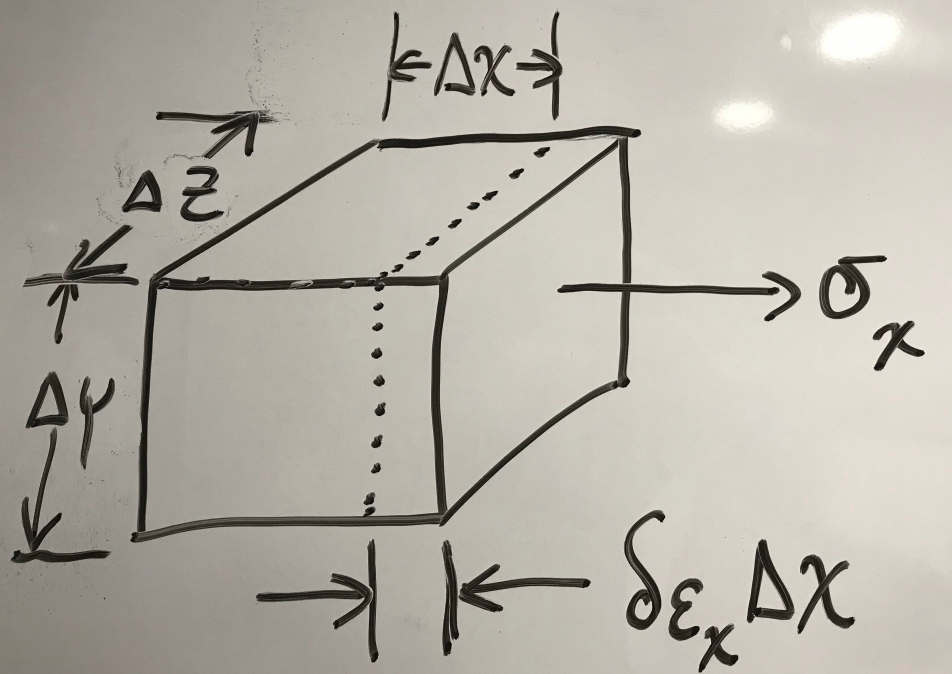 Δx
Δz
σx
Δy
δεx Δx